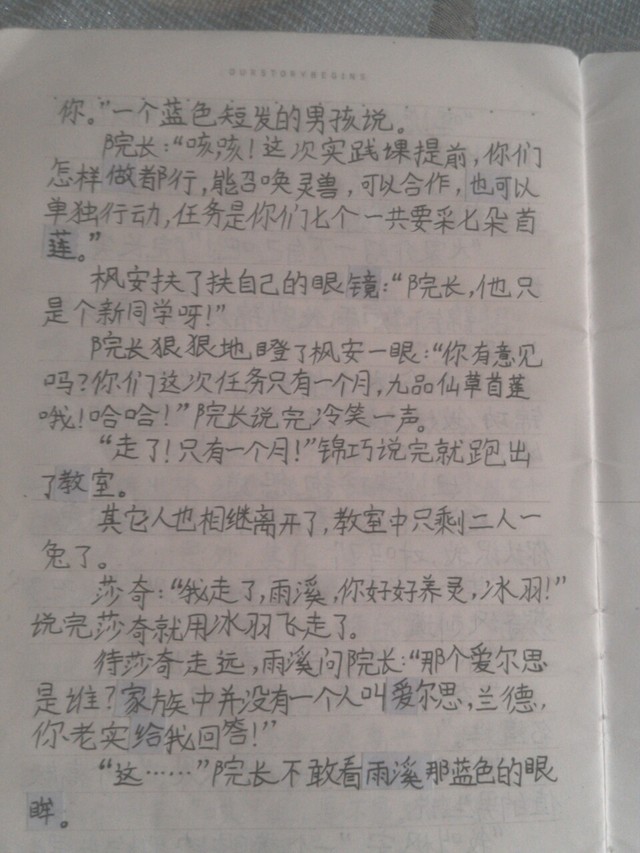 OURSTORYBEGINS
你。”一个蓝色短发的男孩说。
院长：“咳咳！这次实践课提前，你们
怎样做都行，能召唤灵兽，可以合作，也可以
单独行动，任务是你们七个一共要采七朵首
莲。”
枫安扶了扶自己的眼镜：“院长，他只
是个新同学呀！”
院长狠狠地瞪了枫安一眼：“你有意见
吗？你们这次任务只有一个月，九品仙草首莲
哦！哈哈！”院长说完冷笑一声。
“走了！只有一个月！”锦巧说完就跑出
了教室。
其它人也相继离开了，教室中只剩二人一
兔了。
莎奇：“我走了，雨溪，你好好养灵，冰羽！”
说完莎奇就用冰羽飞走了。
待莎奇走远，雨溪问院长：“那个爱尔思
是谁？家族中并没有一个人叫爱尔思，兰德，
你老实给我回答！”
“这……”院长不敢看雨溪那蓝色的眼
眸。